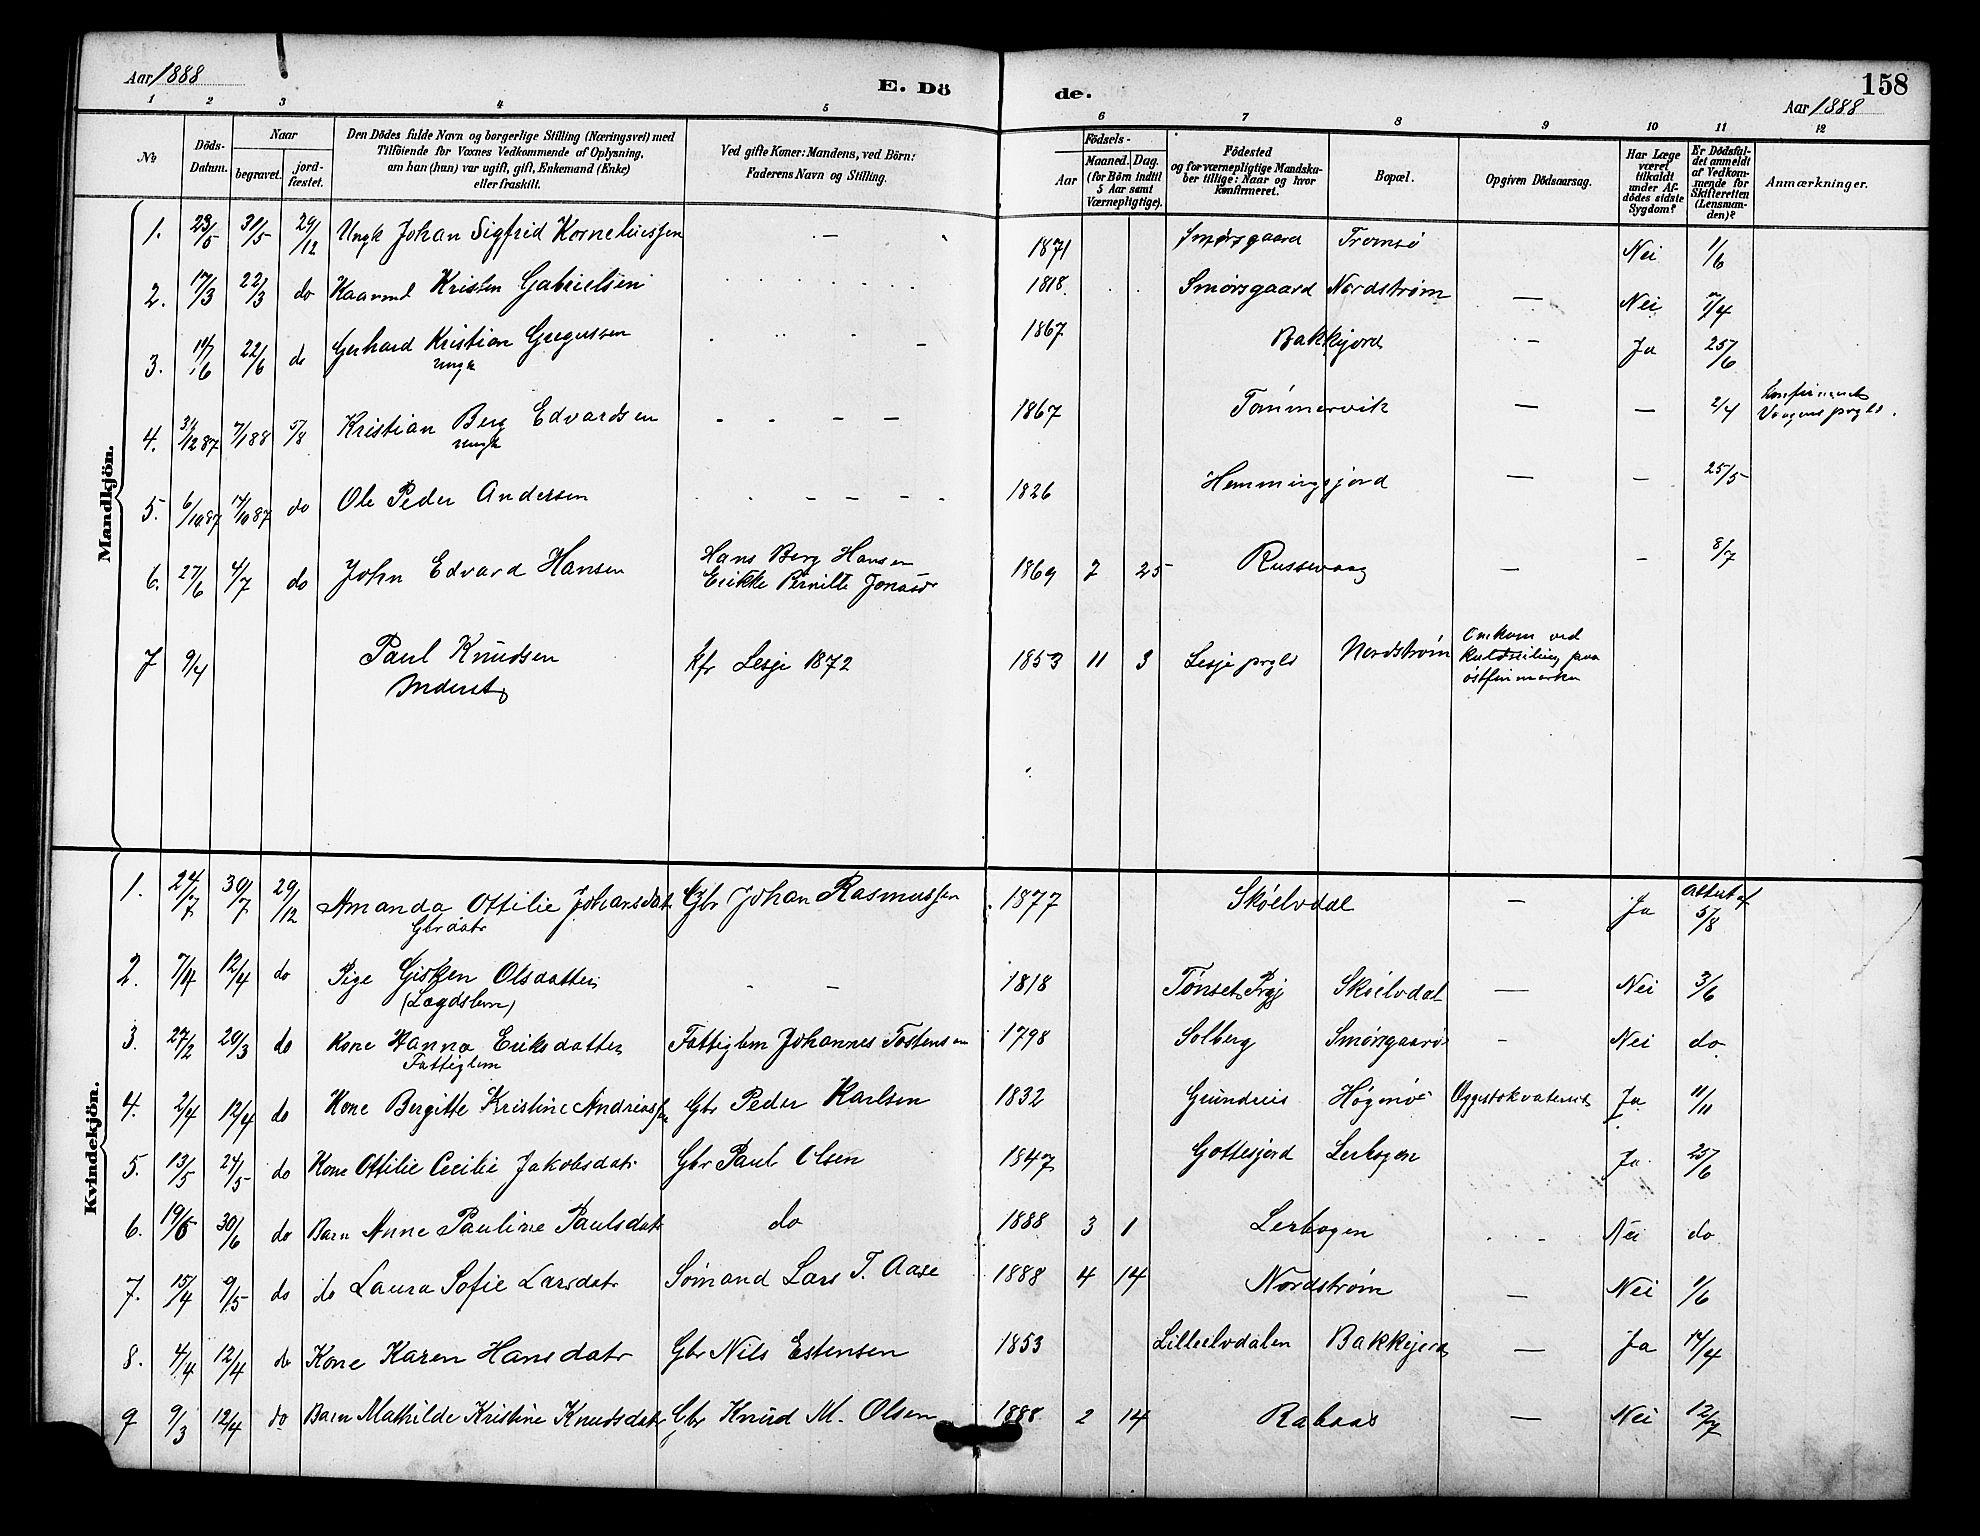 Aar 1888
E. Dö
de.
158
Aar 1888
1 2 3 4 5 6 7 8 9 10 11 12
No
Döds-Datum.
Naar
begravet.
jord-fæstet.
Den Dödes fulde Navn og borgerlige Stilling (Næringsvei) med
Tilföiende for Voxnes Vedkommende af Oplysning,
om han (hun) var ugift, gift, Enkemand (Enke)
eller fraskilt.
Ved gifte Koner: Mandens, ved Börn:
Faderens Navn og Stilling.
Födsels-
Aar
Maaned. Dag.
(for Börn indtil
5 Aar samt
Værnepligtige).
Födested
og for værnepligtige Mandska-
ber tillige: Naar og hvor
konfirmeret.
Bopæl.
Opgiven Dödsaarsag.
Har Læge
været
tilkaldt
under Af-
dödes sidste
Sygdom?
Er Dödsfal-
det anmeldt
af Vedkom-
mende for
Skifteretten
(Lensman-
den)?
Anmærkninger.
Mandkjön.
1. 23/5 31/5 29/12 Ungk Johan Sigfrid Korneliussen — 1871 Smörsgaard Tromsø Nei 1/6
2. 17/3 22/3 do Kaarmd Kristen Gabrielsen 1818. Smørsgaard Nordstrøm — Nei 7/4
3. 11/6 22/6 do Gerhard Kristian Gregussen — 1867 Bakkjord — Ja 25/6
Ungk
4. 31/12 87 7/1 88 5/8 Kristian Berg Edvardsen - - — — 1867 Tømmervik — — 2/4
Ungk
5. 6/10 87 14/10 87 do Ole Peder Andersen - - — — — 1826 Hemmingsjord — — 25/5
6. 27/6 4/7 do John Edvard Hansen Hans Berg Hansen 1869 7 25 Russevaag — — 8/7
Erikke Pernille Jonasdr
7 9/4 Paul Knudsen kfr Lesje 1872 1853 11 3 Lesje prgld Nordstrøm Omkom ved
Inderst
østfinmarken
Kvindekjön.
1. 24/7 30/7 29/12 Amanda Ottilie Johansdat Gbr Johan Rasmussen 1877 Skøelvdal — Ja Attest af 5/8
Gbrdatr
2. 7/4 12/4 do Pige Gisken Olsdatter - — 1818 Tønset Prgj Skøelvdal — Nei 3/6
(Lægdslem)
3. 27/2 20/3 do Kone Hanna Eriksdatter Fattiglem Johannes Tostensen 1798 Solberg Smørsgaard - Nei do
Fattiglem
4. 2/4 12/4 do Kone Bergitte Kristine Andreasd Gbr Peder Karlsen 1832 Grundreis Høgmo Ja 11/11
5. 13/5 24/5 do Kone Ottilie Cecilie Jakobsdatr Gbr Paul Olsen 1847 Gottesjord Lerbogen Ja 25/6
6. 19/6 30/6 do Barn Anne Pauline Paulsdatr do 1888 3 1 Lerbogen Nei do
7. 15/4 9/5 do do Laura Sofie Larsdatr Sømand Lars T. Aase 1888 4 14 Nordstrøm — Nei 1/6
8. 4/4 12/4 do Kone Karen Hansdatr Gbr Nils Estensen 1853 Lilleelvdalen Bakkejord — Ja 14/4
9 9/3 12/4 do Barn Mathilde Kristine Knudsdatr Gbr Knud M. Olsen 1888 2 14 Rabaas — Nei 12/7